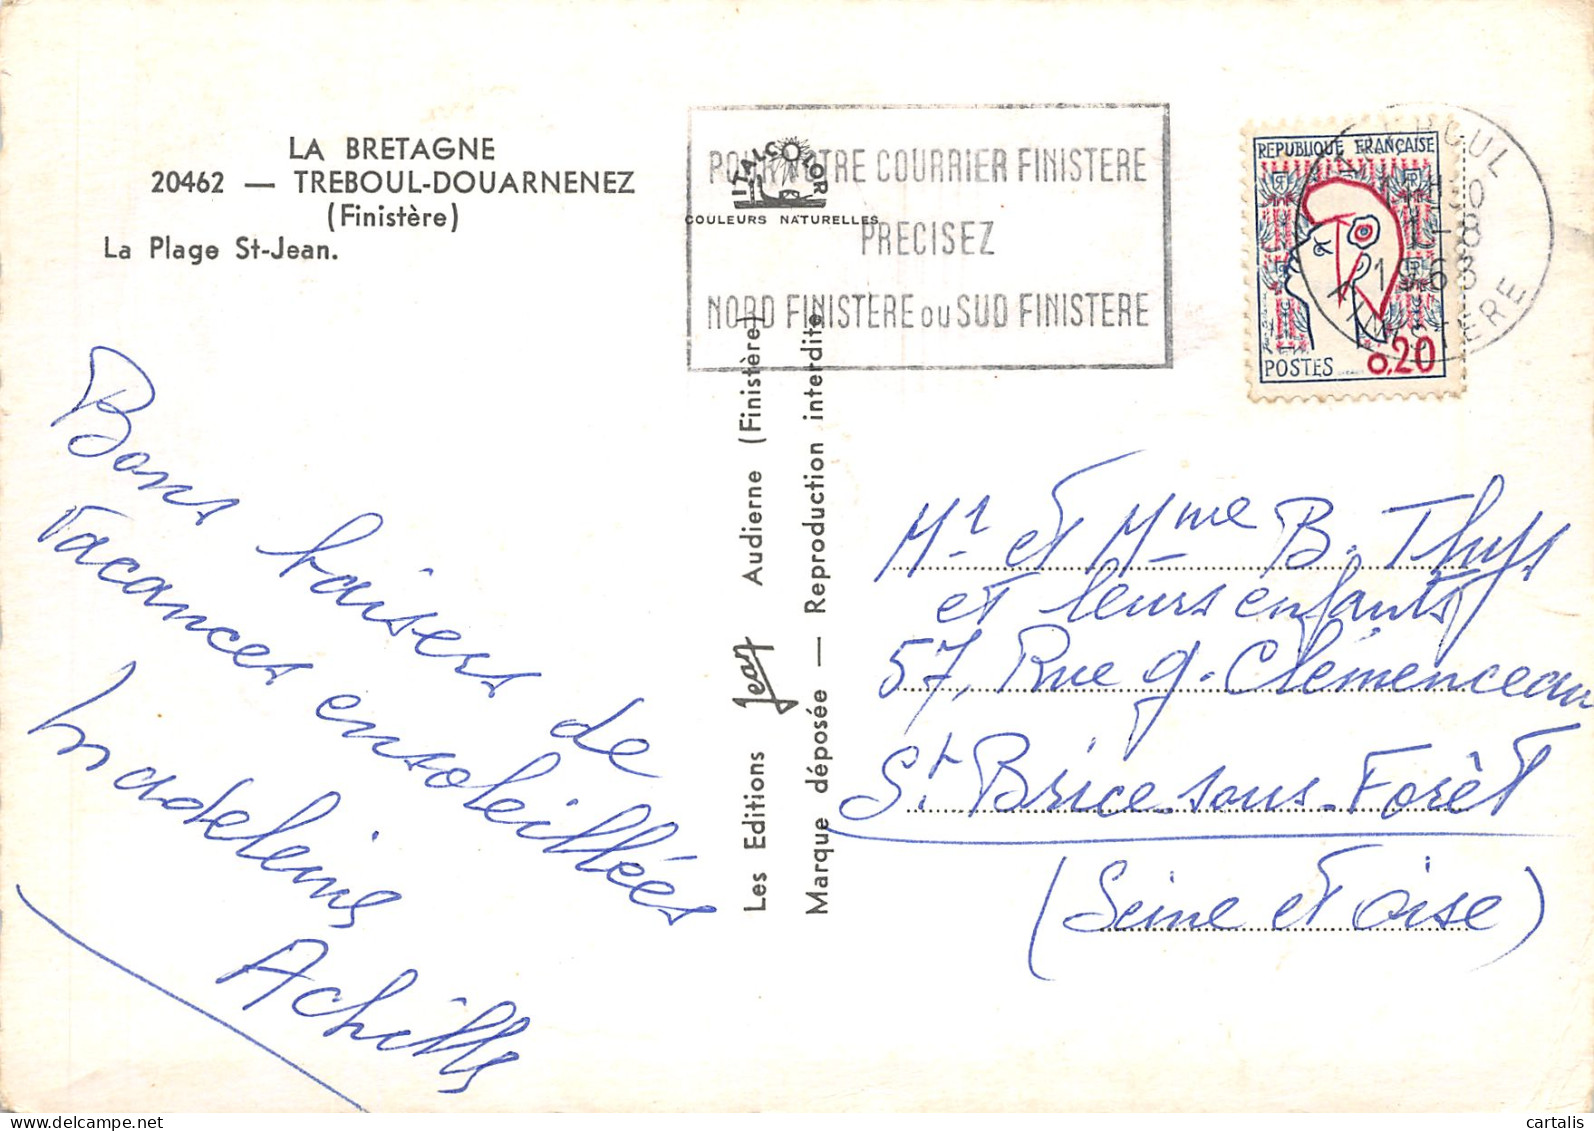 LA BRETAGNE
20462 — TREBOUL-DOUARNENEZ
(Finistère)
La Plage St-Jean.
Bons baisers de
vacances ensoleillées
Madeleine
Achille
ITALCOLOR
COULEURS NATURELLES
POUR VOTRE COURRIER FINISTERE
PRECISEZ
NORD FINISTERE OU SUD FINISTERE
Les Editions Jean Audierne (Finistère)
Marque déposée — Reproduction interdite
REPUBLIQUE FRANÇAISE
POSTES 0,20
TREBOUL
1-8
1963
FINISTERE
Mr et Mme B. Thys
et leurs enfants
57, Rue G. Clémenceau
St Brice sous-Forêt
(Seine et Oise)
cartalis